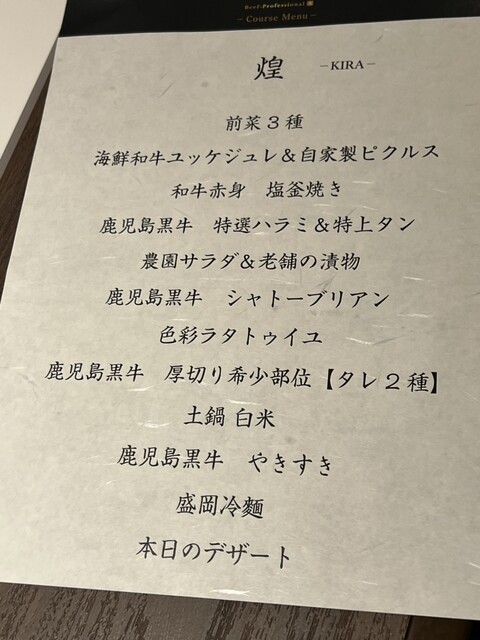 Beef-Professional
– Course Menu –
煌 –KIRA–
前菜3種
海鮮和牛ユッケジュレ＆自家製ピクルス
和牛赤身 塩釜焼き
鹿児島黒牛 特選ハラミ＆特上タン
農園サラダ＆老舗の漬物
鹿児島黒牛 シャトーブリアン
色彩ラタトゥイユ
鹿児島黒牛 厚切り希少部位【タレ2種】
土鍋 白米
鹿児島黒牛 やきすき
盛岡冷麺
本日のデザート